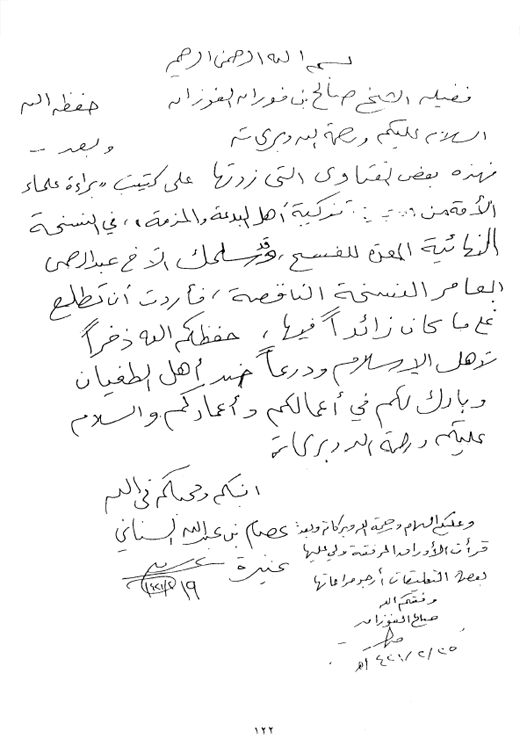 بسم الله الرحمن الرحيم
فضيلة الشيخ صالح بن فوزان الفوزان حفظه الله
السلام عليكم ورحمة الله وبركاته وبعد --
فهذه بعض الفتاوى التي زدتها على كتيب «براءة علماء
الأمة من تزكية أهل البدعة والمذمة»، في النسخة
النهائية المعدة للفسح، وقد سلمك الأخ عبدالرحمن
العامر النسخة الناقصة، فأردت أن تطلع
على ما كان زائداً فيها، حفظكم الله ذخراً
لأهل الإسلام ودرعاً ضد أهل الطغيان
وبارك لكم في أعمالكم وأعماركم والسلام
عليكم ورحمة الله وبركاته
ابنكم ومحبكم في الله
عصام بن عبدالله السناني
عنيزة
وعليكم السلام ورحمة الله وبركاته وبعد:
قرأت الأوراق المرفقة ولي عليها
بعض التعليقات أرجو مراعاتها
وفقكم الله
صالح الفوزان
١٢٢